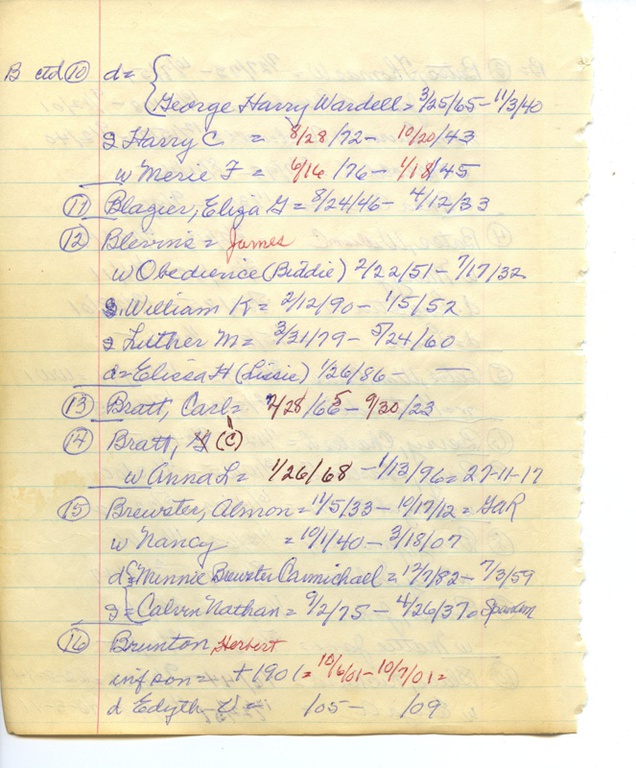 B ctd (10) d = {
George Harry Wardell = 3/25/65 - 11/3/40
s Harry C = 8/28/72 - 10/20/43
w Merie F = 6/16/76 - 1/18/45
(11) Blagier, Eliza G = 8/24/46 - 4/12/33
(12) Blevins = James
w Obedience (Biddie) 2/22/51 - 7/17/32
s. William K = 2/12/90 - 1/5/52
s Luther M = 3/31/79 - 5/24/60
d = Elicsa H (Lissie) 1/26/86 - —
(13) Bratt, Carl = 2/28/65 - 9/30/23
(14) Bratt, (C)
w Anna L = 1/26/68 - 1/13/96 = 27-11-17
(15) Brewster, Almon = 11/5/33 - 10/17/12 = GAR
w Nancy = 10/1/40 - 3/18/07
d = { Minnie Brewster Carmichael = 12/7/82 - 7/3/59
s = { Calvin Nathan = 9/2/75 - 4/26/37 =
(16) Brunton, Herbert
inf son = + 1901 = 10/6/01 - 10/7/01 =
d Edyth V = /05 - /09